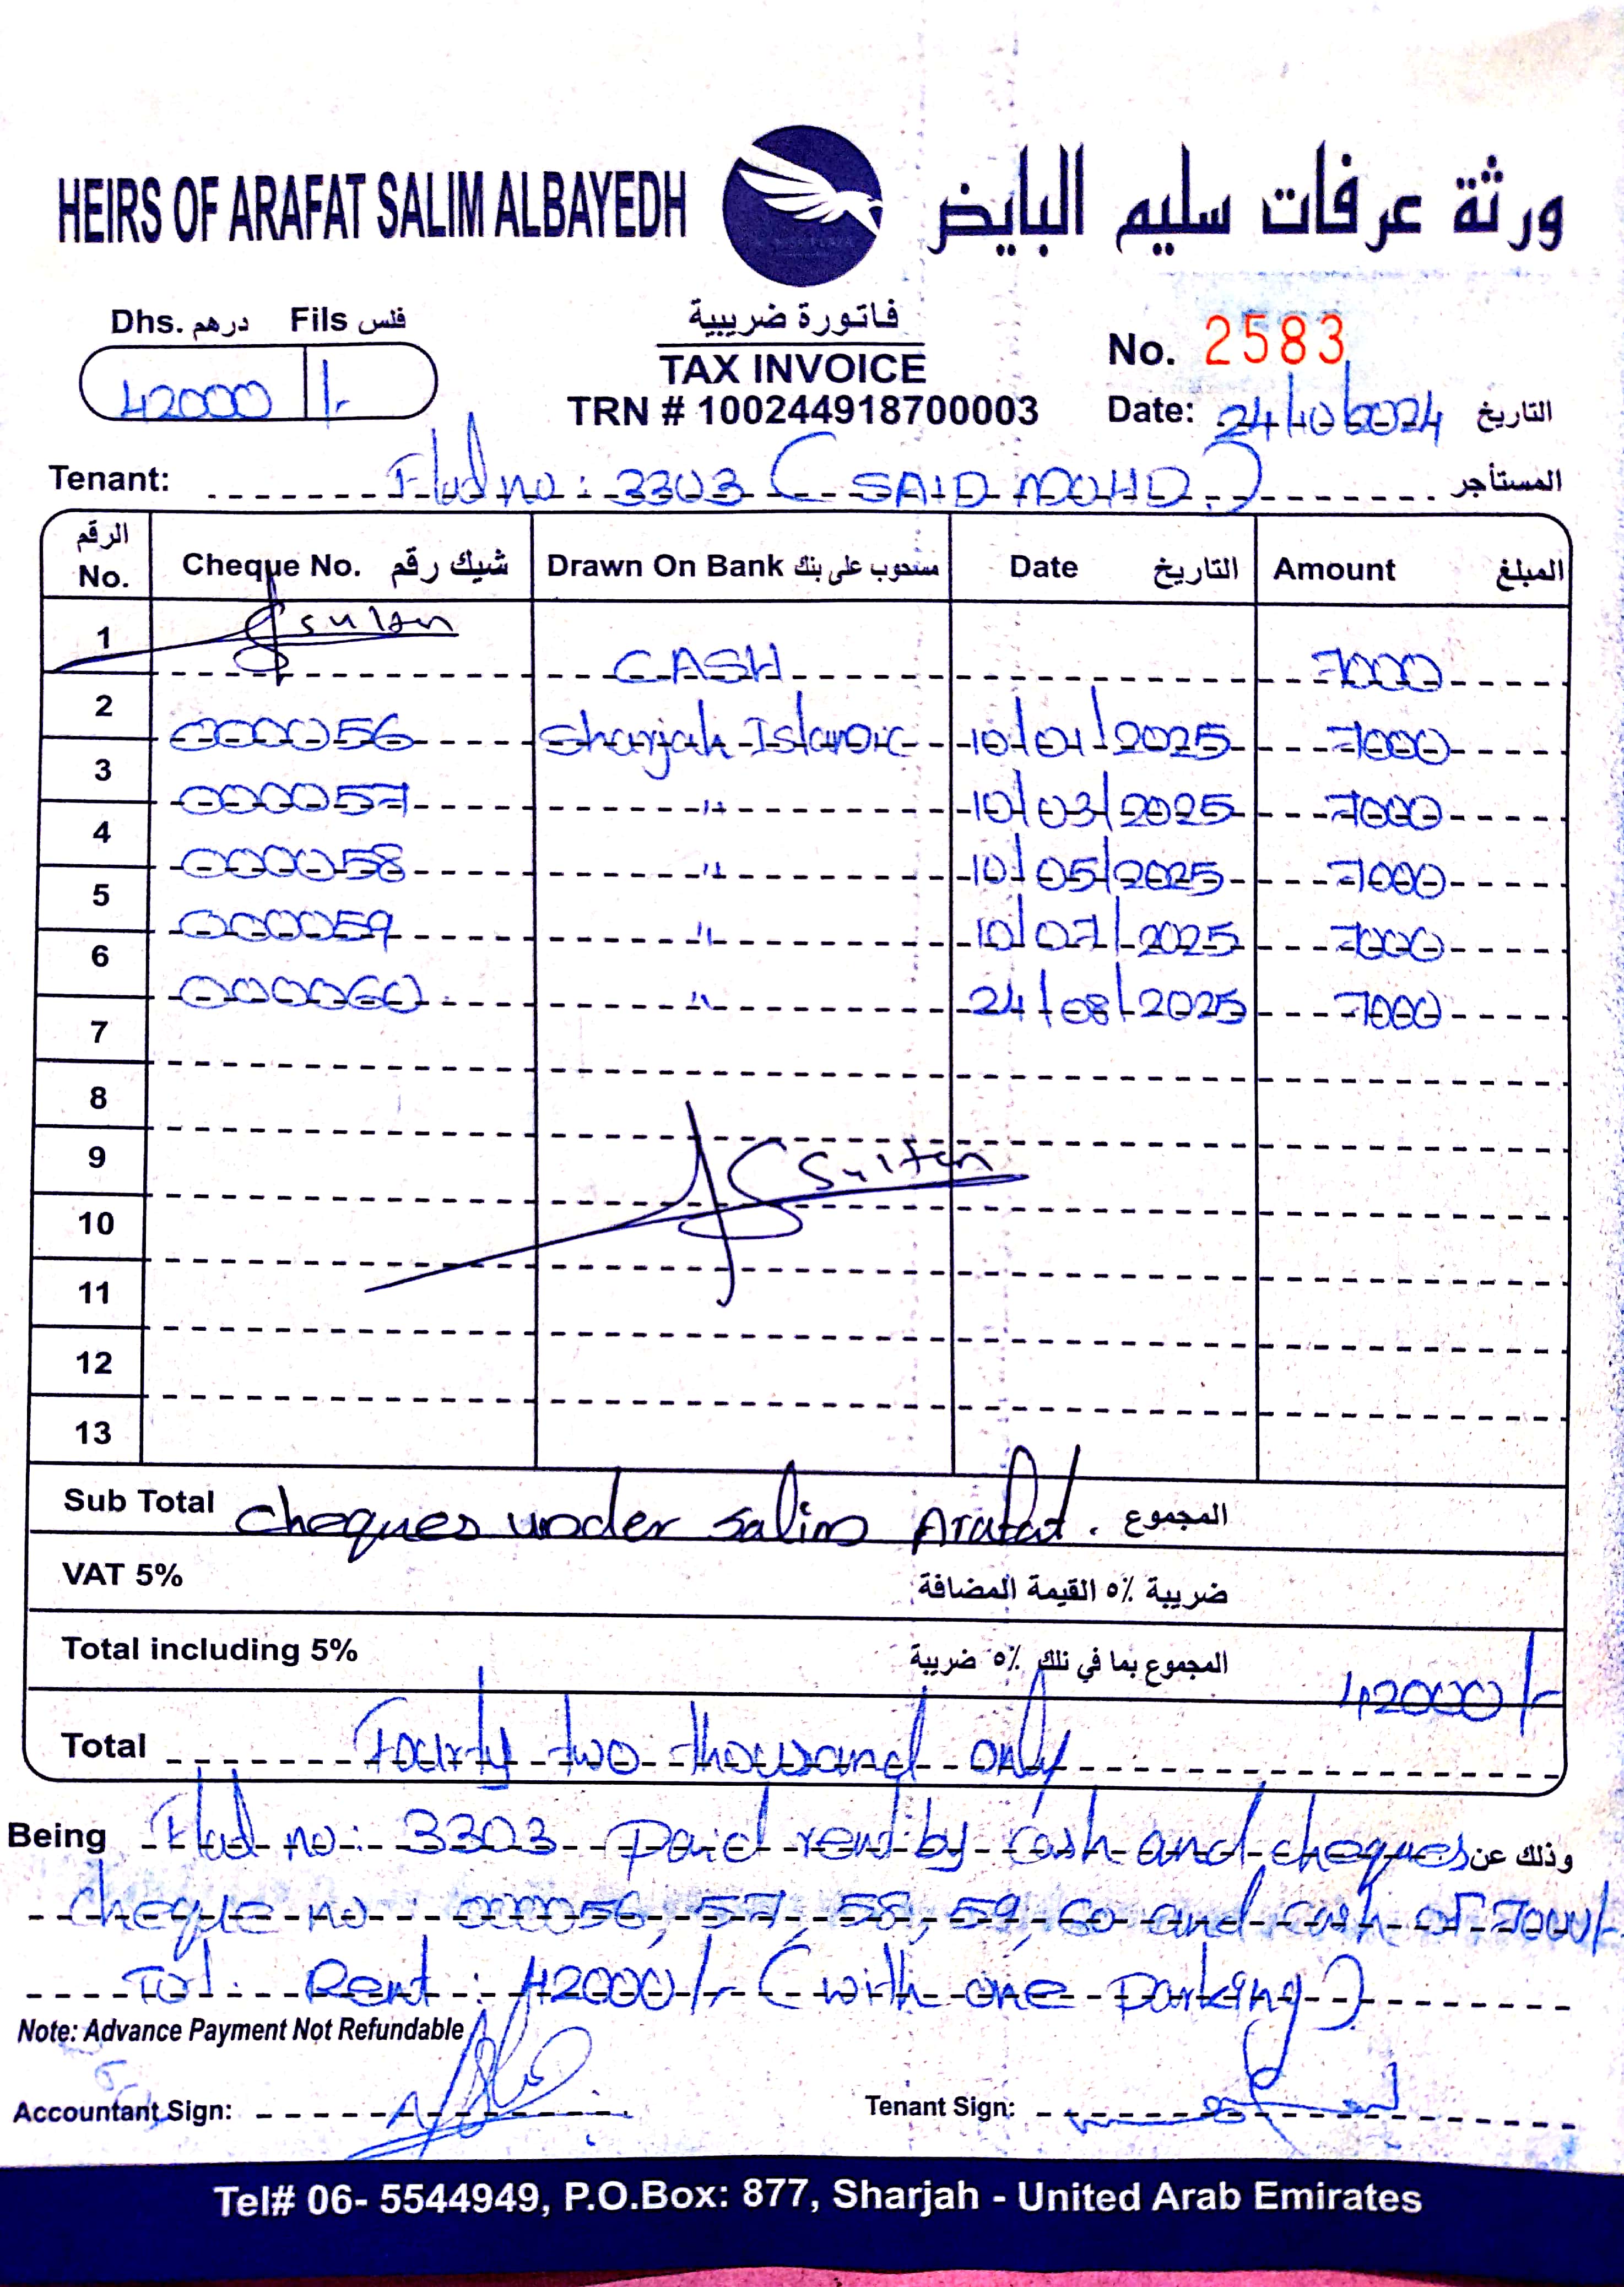 HEIRS OF ARAFAT SALIM ALBAYEDH ورثة عرفات سليم البايض
Dhs. درهم Fils فلس
42000 /-
فاتورة ضريبية
TAX INVOICE
TRN # 100244918700003
No. 2583
Date: 24/10/2024 التاريخ
Tenant: Flat no: 3303 (SAID MOHD.) المستأجر
الرقم No. Cheque No. شيك رقم Drawn On Bank مسحوب على بنك Date التاريخ Amount المبلغ
1 Sultan CASH 7000
2 000056 Sharjah Islamic 10/01/2025 7000
3 000057 " 10/03/2025 7000
4 000058 " 10/05/2025 7000
5 000059 " 10/07/2025 7000
6 000060 " 24/08/2025 7000
7
8
9 Sultan
10
11
12
13
Sub Total cheques under Salim Arafat. المجموع
VAT 5% ضريبة ٥٪ القيمة المضافة
Total including 5% المجموع بما في ذلك ٥٪ ضريبة 42000/-
Total Fourty two thousand only
Being Flat no: 3303 paid rent by cash and cheques وذلك عن
cheque no: 000056, 57, 58, 59, 60 and cash of 7000/-
Tot: Rent: 42000/- (with one parking)
Note: Advance Payment Not Refundable
Accountant Sign: Tenant Sign:
Tel# 06- 5544949, P.O.Box: 877, Sharjah - United Arab Emirates